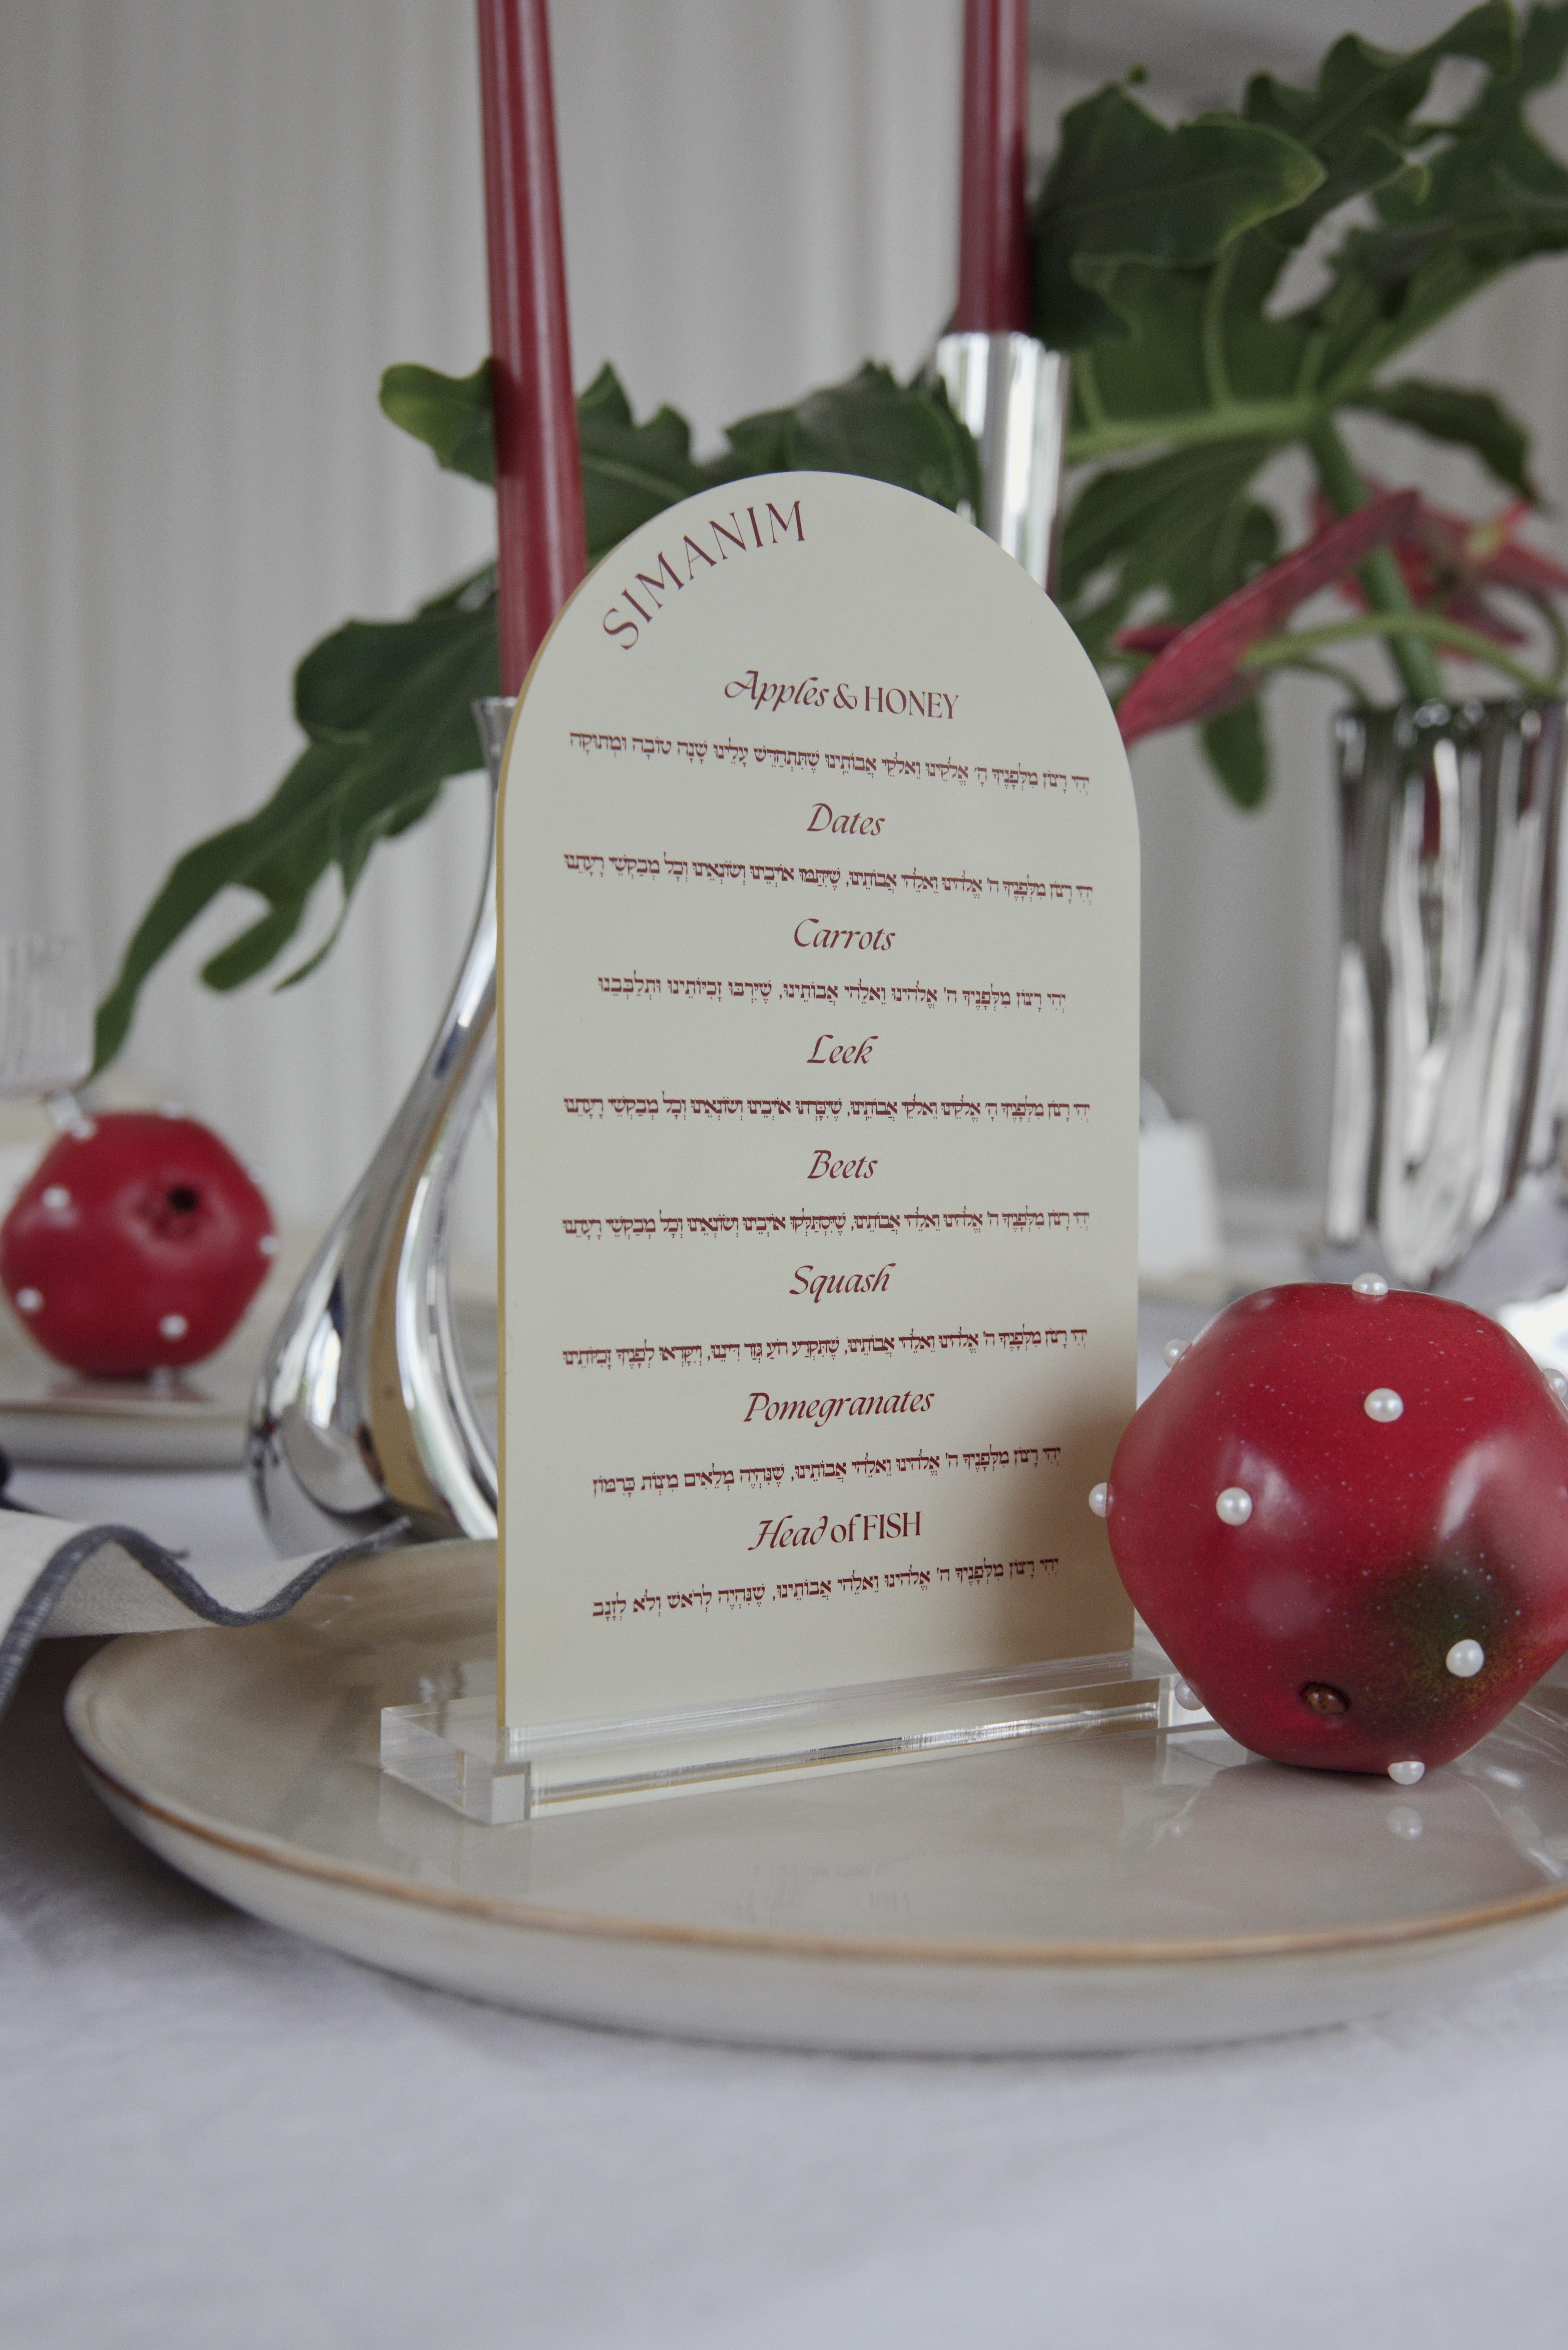 SIMANIM
Apples & HONEY
יְהִי רָצוֹן מִלְּפָנֶיךָ ה' אֱלֹקֵינוּ וֵאלֹקֵי אֲבוֹתֵינוּ שֶׁתִּתְחַדֵּשׁ עָלֵינוּ שָׁנָה טוֹבָה וּמְתוּקָה
Dates
יְהִי רָצוֹן מִלְּפָנֶיךָ ה' אֱלֹהֵינוּ וֵאלֹהֵי אֲבוֹתֵינוּ, שֶׁיִּתַּמּוּ אוֹיְבֵינוּ וְשׂוֹנְאֵינוּ וְכָל מְבַקְשֵׁי רָעָתֵנוּ
Carrots
יְהִי רָצוֹן מִלְּפָנֶיךָ ה' אֱלֹהֵינוּ וֵאלֹהֵי אֲבוֹתֵינוּ, שֶׁיִּרְבּוּ זָכִיּוֹתֵינוּ וּתְלַבְּבֵנוּ
Leek
יְהִי רָצוֹן מִלְּפָנֶיךָ ה' אֱלֹקֵינוּ וֵאלֹקֵי אֲבוֹתֵינוּ, שֶׁיִּכָּרְתוּ אוֹיְבֵינוּ וְשׂוֹנְאֵינוּ וְכָל מְבַקְשֵׁי רָעָתֵנוּ
Beets
יְהִי רָצוֹן מִלְּפָנֶיךָ ה' אֱלֹהֵינוּ וֵאלֹהֵי אֲבוֹתֵינוּ, שֶׁיִּסְתַּלְּקוּ אוֹיְבֵינוּ וְשׂוֹנְאֵינוּ וְכָל מְבַקְשֵׁי רָעָתֵנוּ
Squash
יְהִי רָצוֹן מִלְּפָנֶיךָ ה' אֱלֹהֵינוּ וֵאלֹהֵי אֲבוֹתֵינוּ, שֶׁתִּקְרַע רוֹעַ גְּזַר דִּינֵנוּ, וְיִקָּרְאוּ לְפָנֶיךָ זָכִיּוֹתֵינוּ
Pomegranates
יְהִי רָצוֹן מִלְּפָנֶיךָ ה' אֱלֹהֵינוּ וֵאלֹהֵי אֲבוֹתֵינוּ, שֶׁנִּהְיֶה מְלֵאִים מִצְוֹת כָּרִמּוֹן
Head of FISH
יְהִי רָצוֹן מִלְּפָנֶיךָ ה' אֱלֹהֵינוּ וֵאלֹהֵי אֲבוֹתֵינוּ, שֶׁנִּהְיֶה לְרֹאשׁ וְלֹא לְזָנָב